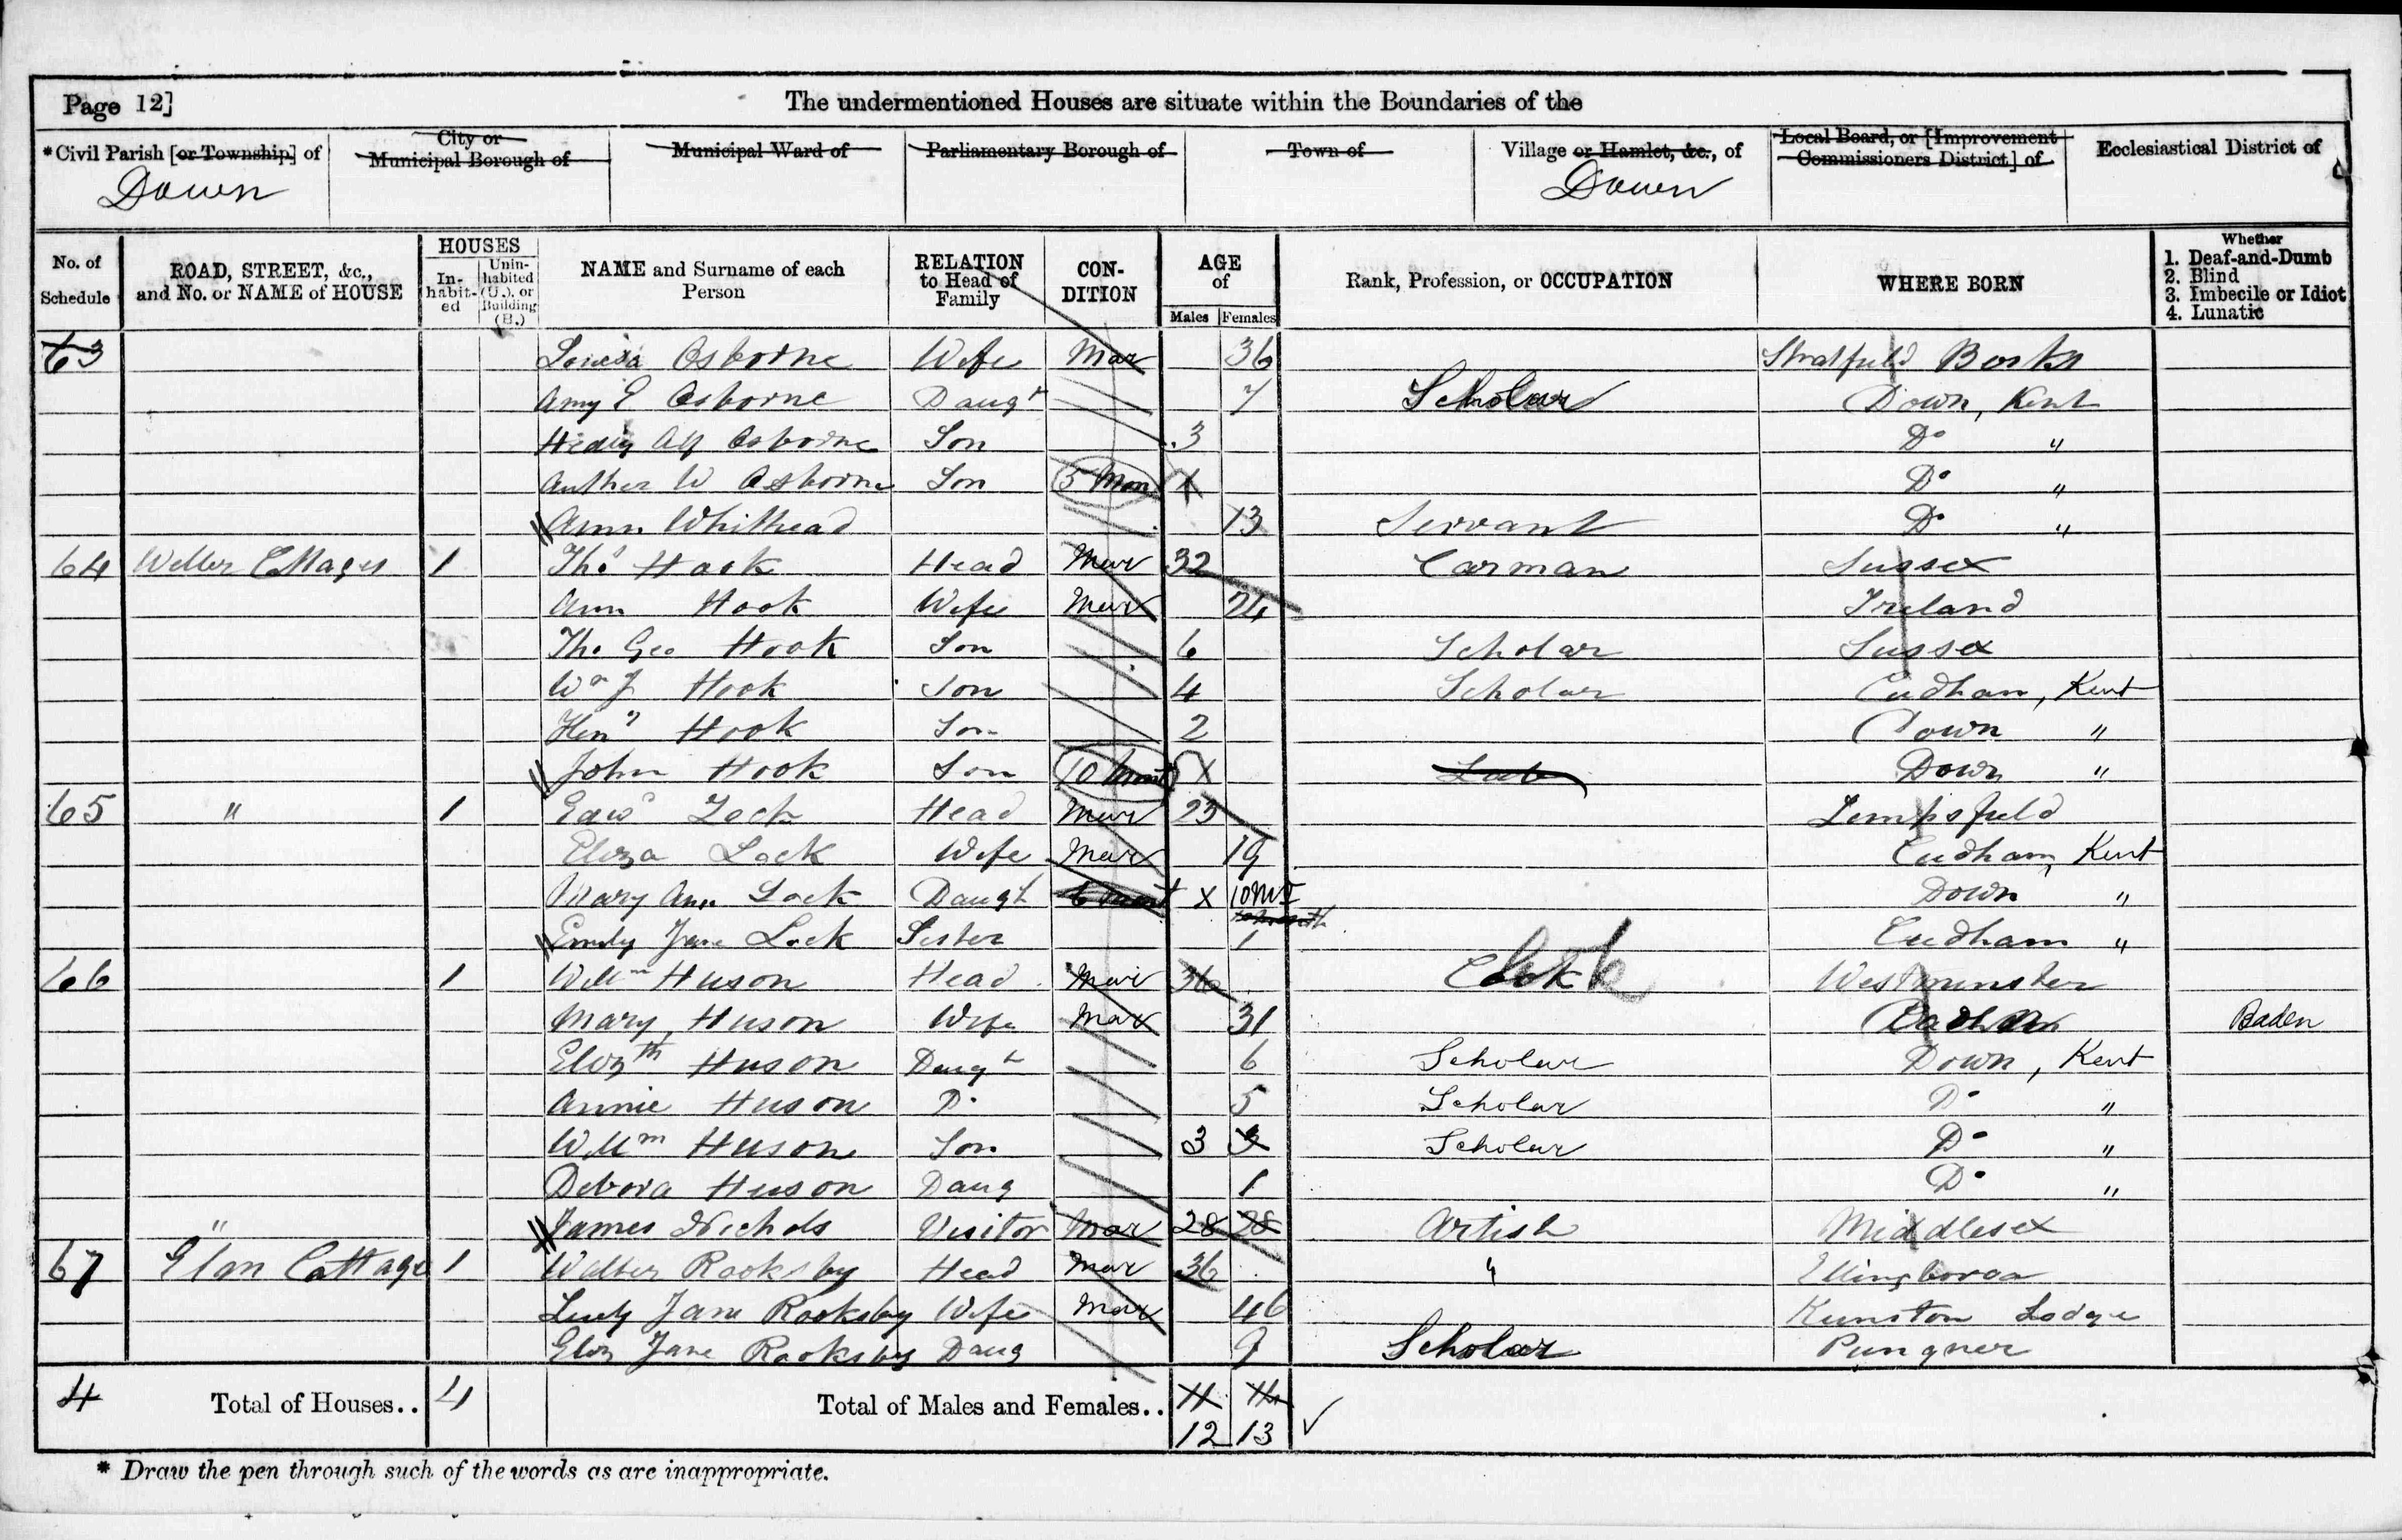 Page 12]
The undermentioned Houses are situate within the Boundaries of the
*Civil Parish [or Township] of
City or Municipal Borough of
Municipal Ward of
Parliamentary Borough of
Town of
Village or Hamlet, &c., of
Local Board, or [Improvement Commissioners District] of
Ecclesiastical District of
Down
Down
No. of Schedule
ROAD, STREET, &c., and No. or NAME of HOUSE
HOUSES
In-habit-ed
Unin-habited (U.), or Building (B.)
NAME and Surname of each Person
RELATION to Head of Family
CON-DITION
AGE of
Males
Females
Rank, Profession, or OCCUPATION
WHERE BORN
Whether
1. Deaf-and-Dumb
2. Blind
3. Imbecile or Idiot
4. Lunatic
63 Osborne Wife Mar 36 Berks
Amy E Osborne Daugt 7 Scholar Down, Kent
Osborne Son 3 Do "
Arther W Osborne Son 5 Mon Do "
Ann Whithead 13 Servant Do "
64 Weller Cottages 1 Thos Hook Head Mar 32 Carman Sussex
Ann Hook Wife Mar 24 Ireland
Tho Geo Hook Son 6 Scholar Sussex
Wm J Hook Son 4 Scholar Cudham, Kent
Heny Hook Son 2 Down "
John Hook Son 10 Mont X Down "
65 " 1 Edwd Lock Head Mar 23 Limpsfield
Eliza Lock Wife Mar 19 Cudham, Kent
Mary Ann Lock Daught X 10 Mt Down "
Emily Jane Lock Sister 1 Cudham "
66 1 Willm Huson Head Mar 36 Westminster
Mary Huson Wife Mar 31 Baden
Elizth Huson Daugt 6 Scholar Down, Kent
Annie Huson Do 5 Scholar Do "
Willm Huson Son 3 3 Scholar Do "
Debora Huson Daug 1 Do "
" James Nichols Visitor Mar 28 28 Artist Middlesex
67 Cottage 1 Walter Rooksby Head Mar 36 "
Lucy Jane Rooksby Wife Mar 46 Lodge
Eliz Jane Rooksby Daug 9 Scholar
4 Total of Houses.. 4 Total of Males and Females.. 11
12 13
* Draw the pen through such of the words as are inappropriate.